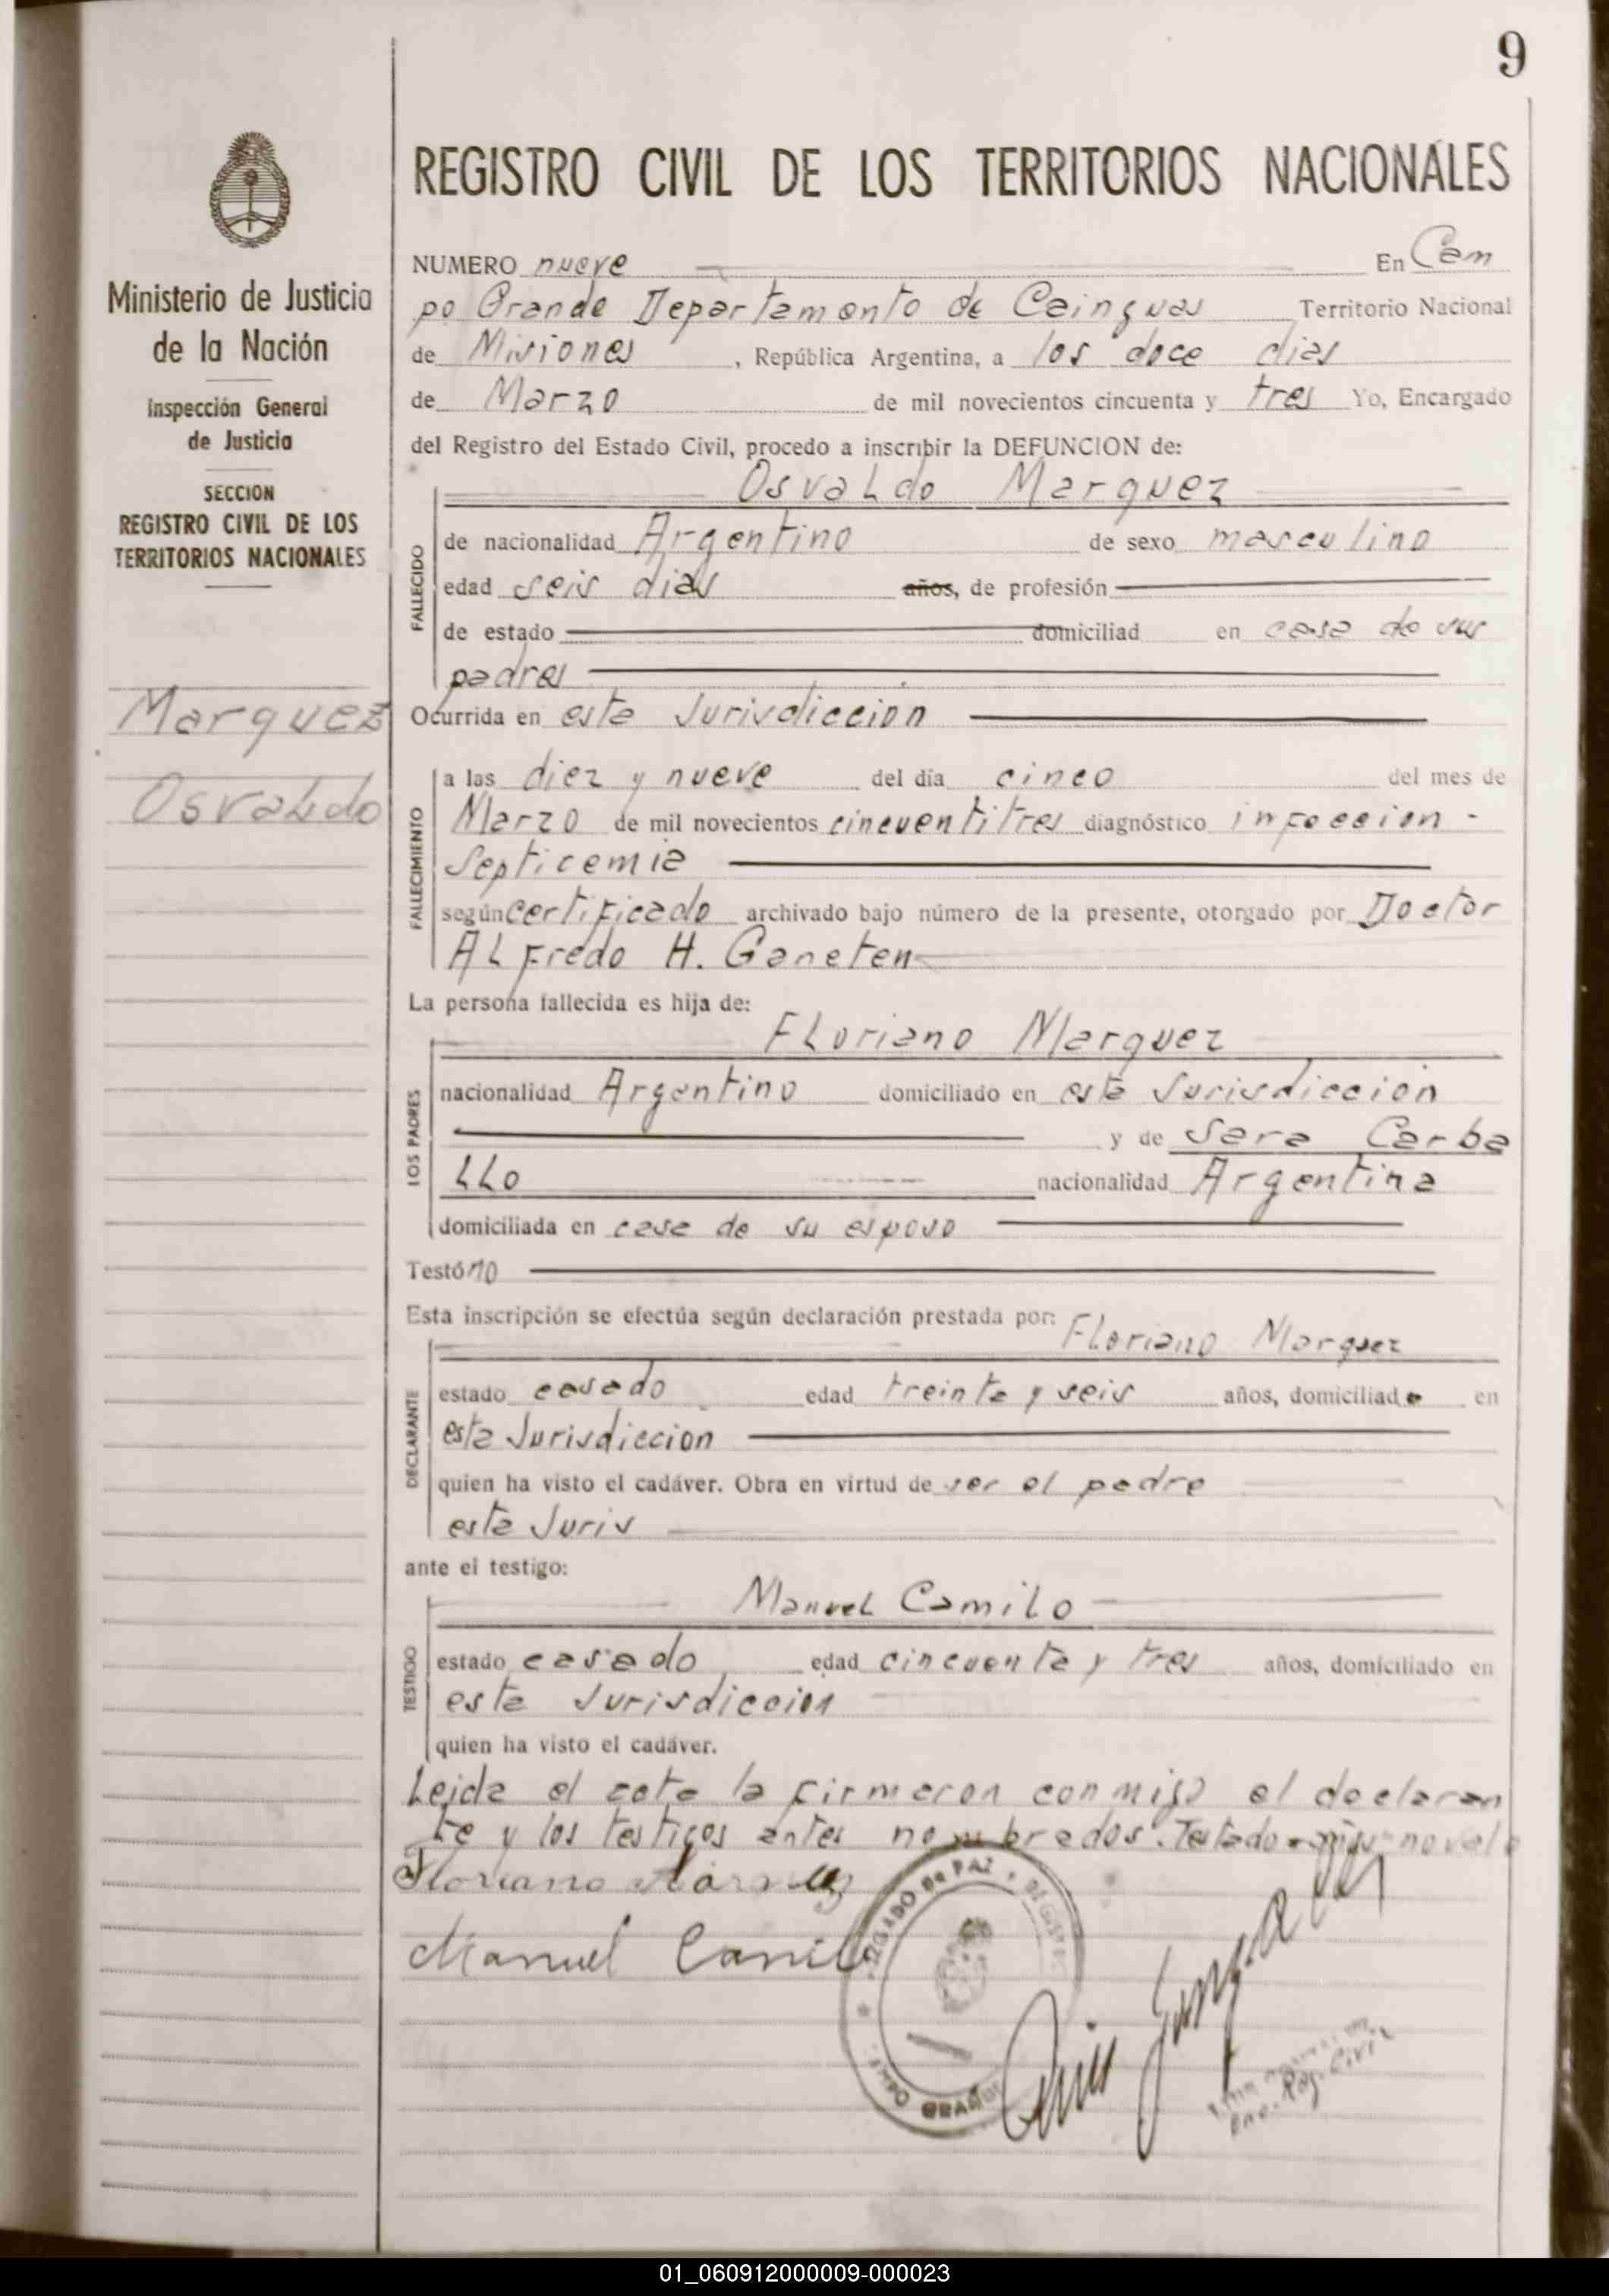 9
REGISTRO CIVIL DE LOS TERRITORIOS NACIONALES
Ministerio de Justicia
de la Nación
Inspección General
de Justicia
SECCION
REGISTRO CIVIL DE LOS
TERRITORIOS NACIONALES
Marquez
Osvaldo
NUMERO nueve En Cam
po Grande Departamento de Cainguas Territorio Nacional
de Misiones, República Argentina, a los doce dias
de Marzo de mil novecientos cincuenta y tres Yo, Encargado
del Registro del Estado Civil, procedo a inscribir la DEFUNCION de:
Osvaldo Marquez
FALLECIDO
de nacionalidad Argentino de sexo masculino
edad seis dias años, de profesión
de estado domiciliad en casa de sus
padres
Ocurrida en esta Jurisdiccion
FALLECIMIENTO
a las diez y nueve del día cinco del mes de
Marzo de mil novecientos cincuentitres diagnóstico infeccion -
Septicemia
según certificado archivado bajo número de la presente, otorgado por Doctor
Alfredo H. Ganeten
La persona fallecida es hija de:
Floriano Marquez
LOS PADRES
nacionalidad Argentino domiciliado en esta Jurisdiccion
y de Sara Carba
llo nacionalidad Argentina
domiciliada en casa de su esposo
Testó no
Esta inscripción se efectúa según declaración prestada por:
Floriano Marquez
DECLARANTE
estado casado edad treinta y seis años, domiciliado en
esta Jurisdiccion
quien ha visto el cadáver. Obra en virtud de ser el padre
esta Juris
ante el testigo:
Manuel Camilo
TESTIGO
estado casado edad cincuenta y tres años, domiciliado en
esta Jurisdiccion
quien ha visto el cadáver.
Leida el acta la firmaron conmigo el declaran
te y los testigos antes nombrados. Testado "años" no vale
Floriano Marquez
Manuel Camilo
JUZGADO DE PAZ
CAMPO GRANDE
Enc. Reg. Civil
01_060912000009-000023